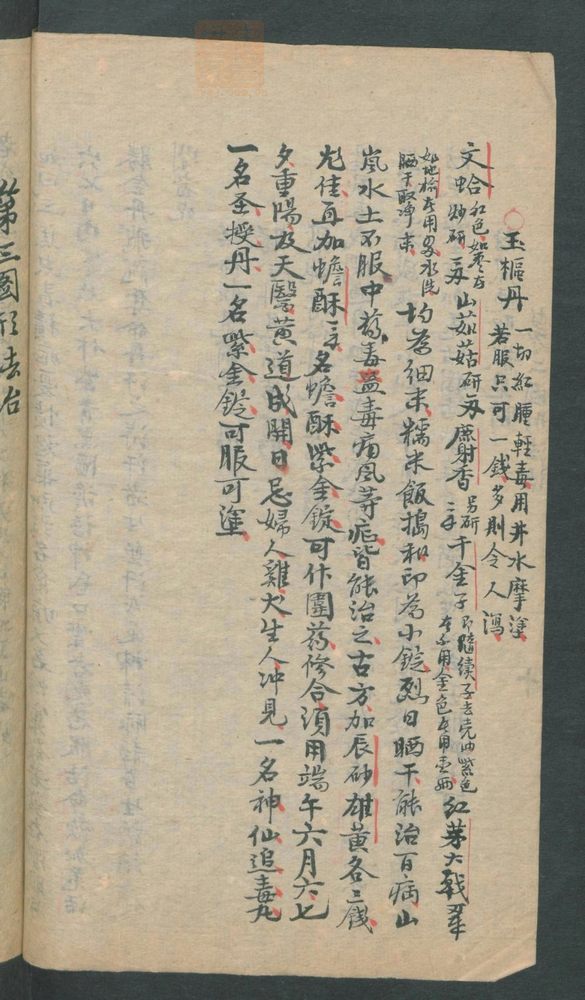 玉樞丹 一切紅腫輕毒用井水摩塗
若服只可一錢多則令人瀉
文蛤 紅色如棗去
炒研 山茹菇研 麝香 另研 千金子 即隨續子去壳油紫色
紅芽大戟
如地榆 用 水洗
晒干取净末 均為細末糯米飯搗和印為小錠烈日晒干能治百病山
嵐水土不服中藥毒蠱毒痛風等症皆能治之古方加辰砂雄黃各三錢
尤佳再加蟾酥 名蟾酥紫金錠可作圍药修合須用端午六月六七
夕重陽及天醫黃道成開日忌婦人雞犬生人冲見 一名神仙追毒丸
一名至授丹一名紫金錠可服可塗
第三圖形法治